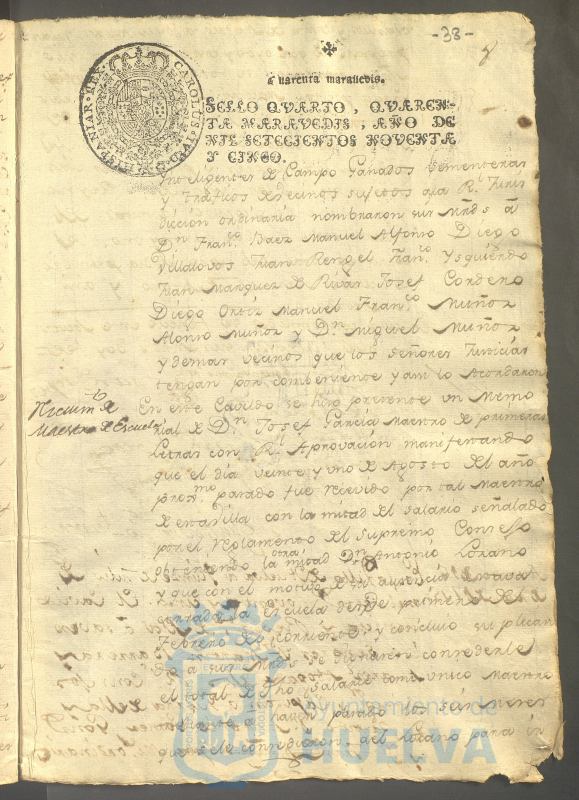 -38-
HISPANIAR·REX· CAROLUS·IV·D·G·
a varenta maravedis.
SELLO QVARTO, QVAREN-
TA MARAVEDIS, AÑO DE
MIL SETECIENTOS NOVENTA
Y CINCO.
Inteligentes de Campo Ganados Sementeras
y traficos de vecinos sujetos a la Rl. Juris
dicion ordinaria nombraron sus Mrds a
Dn Franco Baez Manuel Alfonso Diego
Villalovos Juan Rengel Franco Ysquierdo
Juan Marquez de Rivas Josef Cordero
Diego Ortiz Manuel Franco Muñoz
Alonso Muñoz y Dn Miguel Muñoz
y demas vecinos que los señores Justicias
tengan por combeniente y asi lo Acordaron
Recivimto de
Maestro de Escuela
En este Cavildo se hizo presente un Memo
rial de Dn Josef Garcia Maestro de primeras
letras con Rl Aprovacion manifestando
que el dia veinte y uno de Agosto del año
proxmo pasado fue recevido por tal Maestro
de esta villa con la mitad del salario señalado
por el reglamento del Supremo Consejo
obteniendo la otra mitad Dn Antonio Lozano
y que con el motivo de su ausencia estava
cerrada la Escuela desde primero de
Febrero del corriente, y concluio suplican
do a sus Mrds se dignasen concederle
el total de dho salario como unico Maestro
haver pasado los seis meses
de la condicion del Lozano para
Ayuntamiento de
HUELVA